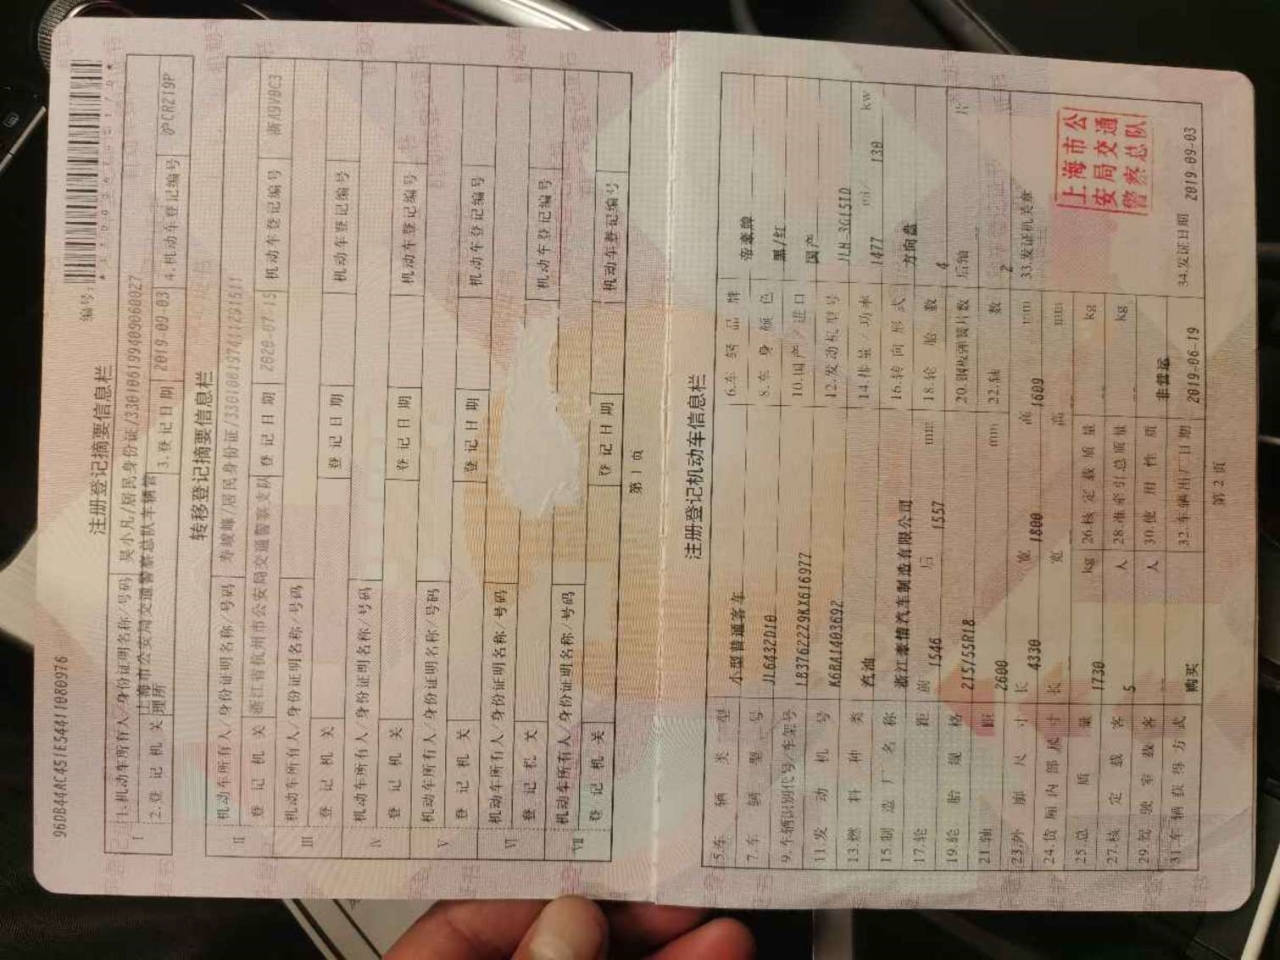 96DB44AC451E54411080976
编号:
注册登记摘要信息栏
I
1.机动车所有人/身份证明名称/号码 吴小凡/居民身份证/330106199409060027
2.登记机关 上海市公安局交通警察总队车辆管理所 3.登记日期 2019-09-03 4.机动车登记编号 沪CRZ19P
转移登记摘要信息栏
II
机动车所有人/身份证明名称/号码 寿峻峰/居民身份证/330106197411291511
登记机关 浙江省杭州市公安局交通警察支队 登记日期 2020-07-15 机动车登记编号 浙A9V8G3
III
机动车所有人/身份证明名称/号码
登记机关 登记日期 机动车登记编号
IV
机动车所有人/身份证明名称/号码
登记机关 登记日期 机动车登记编号
V
机动车所有人/身份证明名称/号码
登记机关 登记日期 机动车登记编号
VI
机动车所有人/身份证明名称/号码
登记机关 登记日期 机动车登记编号
VII
机动车所有人/身份证明名称/号码
登记机关 登记日期 机动车登记编号
第 1 页
注册登记机动车信息栏
5.车辆类型 小型普通客车 6.车辆品牌 帝豪牌
7.车辆型号 JL6432D10 8.车身颜色 黑/红
9.车辆识别代号/车架号 LB37622Z9KX616977 10.国产/进口 国产
11.发动机号 K6BA1403692 12.发动机型号 JLH-3G15TD
13.燃料种类 汽油 14.排量/功率 1477 ml/ 130 kw
15.制造厂名称 浙江豪情汽车制造有限公司 16.转向形式 方向盘
17.轮距 前 1546 后 1557 mm 18.轮胎数 4
19.轮胎规格 215/55R18 20.钢板弹簧片数 后轴 片
21.轴距 2600 mm 22.轴数 2
23.外廓尺寸 长 4330 宽 1800 高 1609 mm
24.货厢内部尺寸 长 宽 高 mm
25.总质量 1730 kg 26.核定载质量 kg
27.核定载客 5 人 28.准牵引总质量 kg
29.驾驶室载客 人 30.使用性质 非营运
31.车辆获得方式 购买 32.车辆出厂日期 2019-06-19
33.发证机关章
上海市公
安局交通
警察总队
34.发证日期 2019-09-03
第 2 页